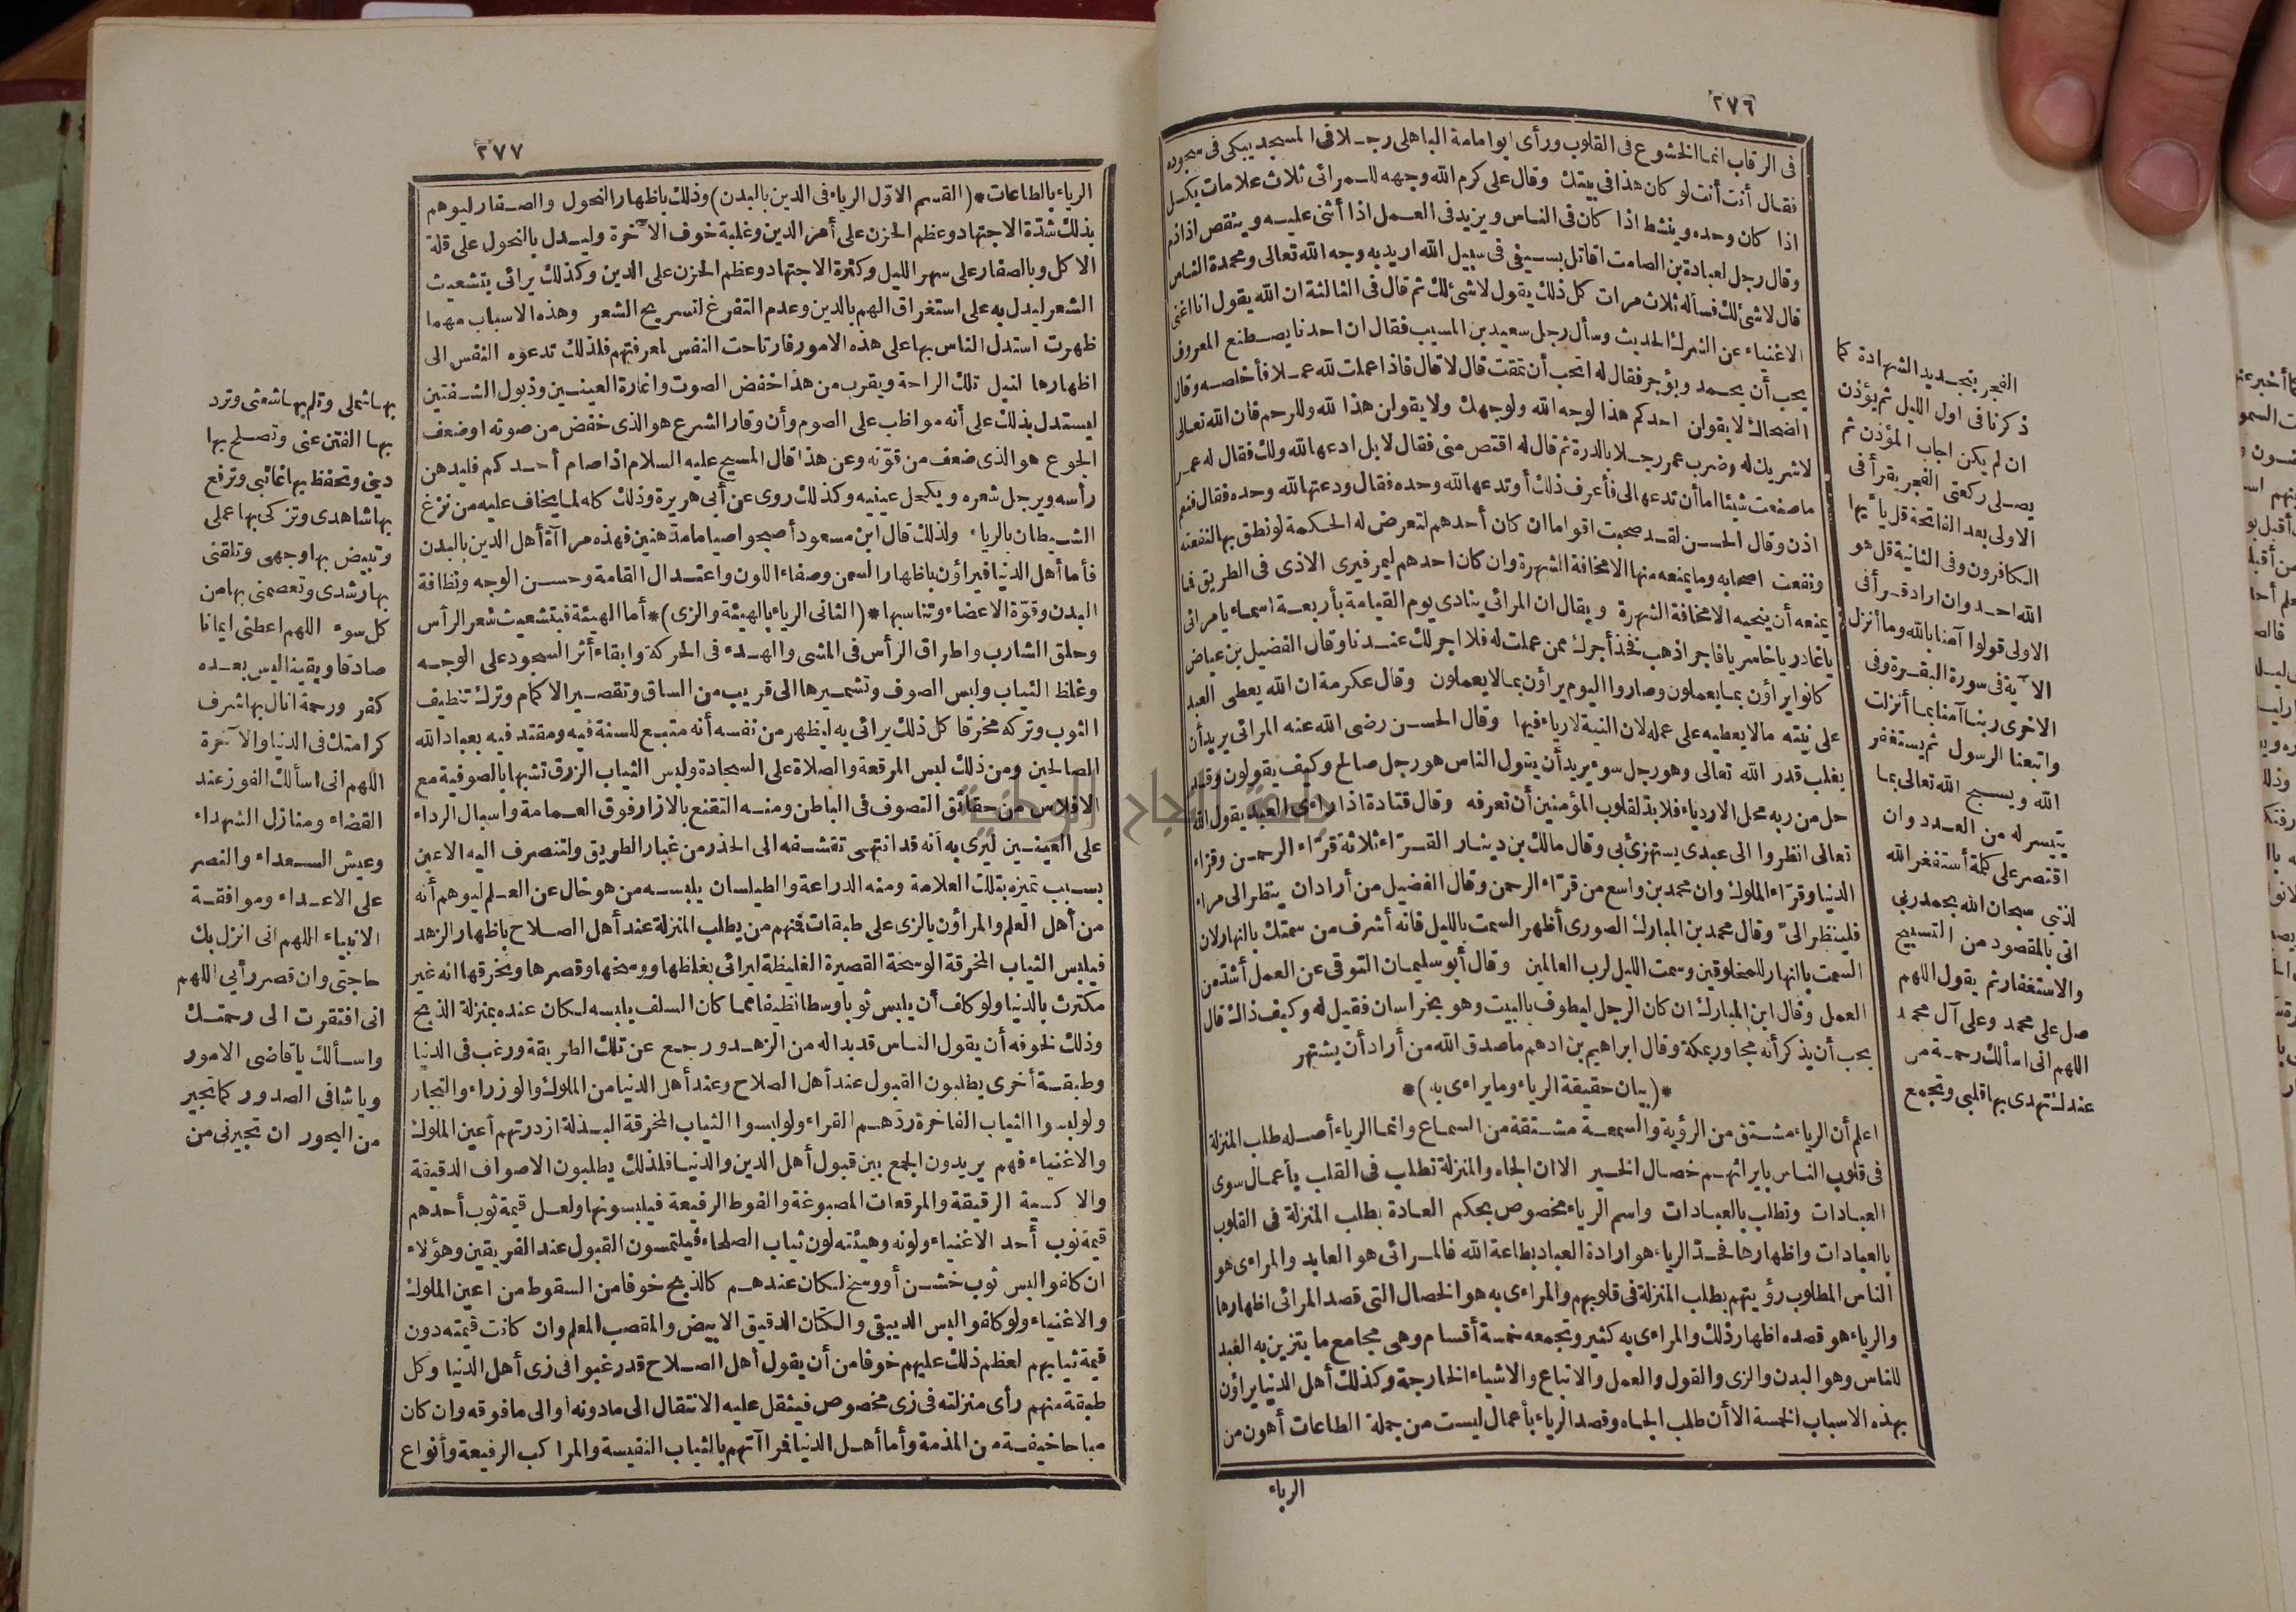 ٢٧٦
فى الرقاب انما الخشوع فى القلوب ورأى ابوامامة الباهلى رجلا فى المسجد يبكى فى سجوده
فقال أنت أنت لو كان هذا فى بيتك وقال على كرم الله وجهه للمرائى ثلاث علامات يكسل
اذا كان وحده وينشط اذا كان فى الناس ويزيد فى العمل اذا أثنى عليه وينقص اذا ذم
وقال رجل لعبادة بن الصامت اقاتل بسيفى فى سبيل الله اريد به وجه الله تعالى ومحمدة الناس
قال لا شئ لك فسأله ثلاث مرات كل ذلك يقول لا شئ لك ثم قال فى الثالثة ان الله يقول انا اغنى
الاغنياء عن الشرك الحديث وسأل رجل سعيد بن المسيب فقال ان احدنا يصطنع المعروف
يحب أن يحمد ويؤجر فقال له اتحب أن تمقت قال لا قال فاذا عملت لله عملا فأخلصه وقال
الضحاك لا يقولن احدكم هذا لوجه الله ولوجهك ولا يقولن هذا لله وللرحم فان الله تعالى
لا شريك له وضرب عمر رجلا بالدرة ثم قال له اقتص منى فقال لا بل ادعها لله ولك فقال له عمر
ما صنعت شيئا اما أن تدعها الى فأعرف ذلك أو تدعها لله وحده فقال ودعتها لله وحده فقال فنعم
اذن وقال الحسن لقد صحبت اقواما ان كان أحدهم لتعرض له الحكمة لو نطق بها لنفعته
ونفعت اصحابه وما يمنعه منها الا مخافة الشهرة وان كان احدهم ليمر فيرى الاذى فى الطريق فما
يمنعه أن ينحيه الا مخافة الشهرة ويقال ان المرائى ينادى يوم القيامة بأربعة اسماء يا مرائى
يا غادر يا خاسر يا فاجر اذهب فخذ أجرك ممن عملت له فلا اجر لك عندنا وقال الفضيل بن عياض
كانوا يراؤن بما يعملون وصاروا اليوم يراؤن بما لا يعملون وقال عكرمة ان الله يعطى العبد
على نيته مالا يعطيه على عمله لان النية لا رياء فيها وقال الحسن رضى الله عنه المرائى يريد أن
يغلب قدر الله تعالى وهو رجل سوء يريد أن يقول الناس هو رجل صالح وكيف يقولون وقد
حل من ربه محل الاردياء فلا بد لقلوب المؤمنين أن تعرفه وقال قتادة اذا راءى العبد يقول الله
تعالى انظروا الى عبدى يستهزئ بى وقال مالك بن دينار القراء ثلاثة قراء الرحمن وقراء
الدنيا وقراء الملوك وان محمد بن واسع من قراء الرحمن وقال الفضيل من أراد ان ينظر الى مراء
فلينظر الىّ وقال محمد بن المبارك الصورى أظهر السمت بالليل فانه أشرف من سمتك بالنهار لان
السمت بالنهار للمخلوقين وسمت الليل لرب العالمين وقال أبو سليمان التوقى عن العمل أشد من
العمل وقال ابن المبارك ان كان الرجل ليطوف بالبيت وهو بخراسان فقيل له وكيف ذاك قال
يحب أن يذكر أنه مجاور بمكة وقال ابراهيم بن ادهم ما صدق الله من أراد أن يشتهر
*(بيان حقيقة الرياء وما يراءى به)*
اعلم أن الرياء مشتق من الرؤية والسمعة مشتقة من السماع وانما الرياء أصله طلب المنزلة
فى قلوب الناس بايرائهم خصال الخير الا ان الجاه والمنزلة تطلب فى القلب بأعمال سوى
العبادات وتطلب بالعبادات واسم الرياء مخصوص بحكم العادة بطلب المنزلة فى القلوب
بالعبادات واظهارها فحد الرياء هو ارادة العباد بطاعة الله فالمرائى هو العابد والمراءى هو
الناس المطلوب رؤيتهم بطلب المنزلة فى قلوبهم والمراءى به هو الخصال التى قصد المرائى اظهارها
والرياء هو قصده اظهار ذلك والمراءى به كثير وتجمعه خمسة أقسام وهى مجامع ما يتزين به العبد
للناس وهو البدن والزى والقول والعمل والاتباع والاشياء الخارجة وكذلك أهل الدنيا يراؤن
بهذه الاسباب الخمسة الا أن طلب الجاه وقصد الرياء بأعمال ليست من جملة الطاعات أهون من
الرياء
الفجر بتجديد الشهادة كما
ذكرنا فى اول الليل ثم يؤذن
ان لم يكن اجاب المؤذن ثم
يصلى ركعتى الفجر يقرأ فى
الاولى بعد الفاتحة قل يا أيها
الكافرون وفى الثانية قل هو
الله احد وان اراد قرأ فى
الاولى قولوا آمنا بالله وما أنزل
الآية فى سورة البقرة وفى
الاخرى ربنا آمنا بما أنزلت
واتبعنا الرسول ثم يستغفر
الله ويسبح الله تعالى بما
يتيسر له من العدد وان
اقتصر على كلمة أستغفر الله
لذنبى سبحان الله بحمد ربى
اتى بالمقصود من التسبيح
والاستغفار ثم يقول اللهم
صل على محمد وعلى آل محمد
اللهم انى اسألك رحمة من
عندك تهدى بها قلبى وتجمع
٢٧٧
الرياء بالطاعات *(القسم الاول الرياء فى الدين بالبدن) وذلك باظهار النحول والصفار ليوهم
بذلك شدة الاجتهاد وعظم الحزن على أمر الدين وغلبة خوف الآخرة وليدل بالنحول على قلة
الاكل وبالصفار على سهر الليل وكثرة الاجتهاد وعظم الحزن على الدين وكذلك يرائى بتشعيث
الشعر ليدل به على استغراق الهم بالدين وعدم التفرغ لتسريح الشعر وهذه الاسباب مهما
ظهرت استدل الناس بها على هذه الامور فارتاحت النفس لمعرفتهم فلذلك تدعوه النفس الى
اظهارها لنيل تلك الراحة ويقرب من هذا خفض الصوت واغارة العينين وذبول الشفتين
ليستدل بذلك على أنه مواظب على الصوم وأن وقار الشرع هو الذى خفض من صوته او ضعف
الجوع هو الذى ضعف من قوته وعن هذا قال المسيح عليه السلام اذا صام أحدكم فليدهن
رأسه ويرجل شعره ويكحل عينيه وكذلك روى عن أبى هريرة وذلك كله لما يخاف عليه من نزغ
الشيطان بالرياء ولذلك قال ابن مسعود أصبحوا صياما مدهنين فهذه مراآة أهل الدين بالبدن
فأما أهل الدنيا فيراؤن باظهار السمن وصفاء اللون واعتدال القامة وحسن الوجه ونظافة
البدن وقوة الاعضاء وتناسبها *(الثانى الرياء بالهيئة والزى)* أما الهيئة فبتشعيث شعر الرأس
وحلق الشارب واطراق الرأس فى المشى والهدء فى الحركة وابقاء أثر السجود على الوجه
وغلظ الثياب ولبس الصوف وتشميرها الى قريب من الساق وتقصير الاكمام وترك تنظيف
الثوب وتركه مخرقا كل ذلك يرائى به ليظهر من نفسه أنه متبع للسنة فيه ومقتد فيه بعباد الله
الصالحين ومن ذلك لبس المرقعة والصلاة على السجادة ولبس الثياب الزرق تشبها بالصوفية مع
الافلاس من حقائق التصوف فى الباطن ومنه التقنع بالازار فوق العمامة واسبال الرداء
على العينين ليرى به أنه قد انتهى تقشفه الى الحذر من غبار الطريق ولتنصرف اليه الاعين
بسبب تميزه بتلك العلامة ومنه الدراعة والطيلسان يلبسه من هو خال عن العلم ليوهم أنه
من أهل العلم والمراؤن بالزى على طبقات فمنهم من يطلب المنزلة عند أهل الصلاح باظهار الزهد
فيلبس الثياب المخرقة الوسخة القصيرة الغليظة ليرائى بغلظها ووسخها وقصرها وتخرقها انه غير
مكترث بالدنيا ولو كلف أن يلبس ثوبا وسطا نظيفا مما كان السلف يلبسه لكان عنده بمنزلة الذبح
وذلك لخوفه أن يقول الناس قد بدا له من الزهد ورجع عن تلك الطريقة ورغب فى الدنيا
وطبقة أخرى يطلبون القبول عند أهل الصلاح وعند أهل الدنيا من الملوك والوزراء والتجار
ولو لبسوا الثياب الفاخرة ردهم القراء ولو لبسوا الثياب المخرقة البذلة ازدرتهم أعين الملوك
والاغنياء فهم يريدون الجمع بين قبول أهل الدين والدنيا فلذلك يطلبون الاصواف الدقيقة
والاكسية الرقيقة والمرقعات المصبوغة والفوط الرفيعة فيلبسونها ولعل قيمة ثوب أحدهم
قيمة ثوب أحد الاغنياء ولونه وهيئته لون ثياب الصلحاء فيلتمسون القبول عند الفريقين وهؤلاء
ان كلفوا لبس ثوب خشن أو وسخ لكان عندهم كالذبح خوفا من السقوط من اعين الملوك
والاغنياء ولو كلفوا لبس الديبقى والكتان الدقيق الابيض والمقصب المعلم وان كانت قيمته دون
قيمة ثيابهم لعظم ذلك عليهم خوفا من أن يقول أهل الصلاح قد رغبوا فى زى أهل الدنيا وكل
طبقة منهم رأى منزلته فى زى مخصوص فيثقل عليه الانتقال الى ما دونه أو الى ما فوقه وان كان
مباحا خيفة من المذمة وأما أهل الدنيا فمراآتهم بالثياب النفيسة والمراكب الرفيعة وأنواع
بها شملى وتلم بها شعثى وترد
بها الفتن عنى وتصلح بها
دينى وتحفظ بها غائبى وترفع
بها شاهدى وتزكى بها عملى
وتبيض بها وجهى وتلقنى
بها رشدى وتعصمنى بها من
كل سوء اللهم اعطنى ايمانا
صادقا ويقينا ليس بعده
كفر ورحمة انال بها شرف
كرامتك فى الدنيا والآخرة
اللهم انى اسألك الفوز عند
القضاء ومنازل الشهداء
وعيش السعداء والنصر
على الاعداء وموافقة
الانبياء اللهم انى انزل بك
حاجتى وان قصر رأيى اللهم
انى افتقرت الى رحمتك
واسألك يا قاضى الامور
ويا شافى الصدور كما تجير
من البحور ان تجيرنى من